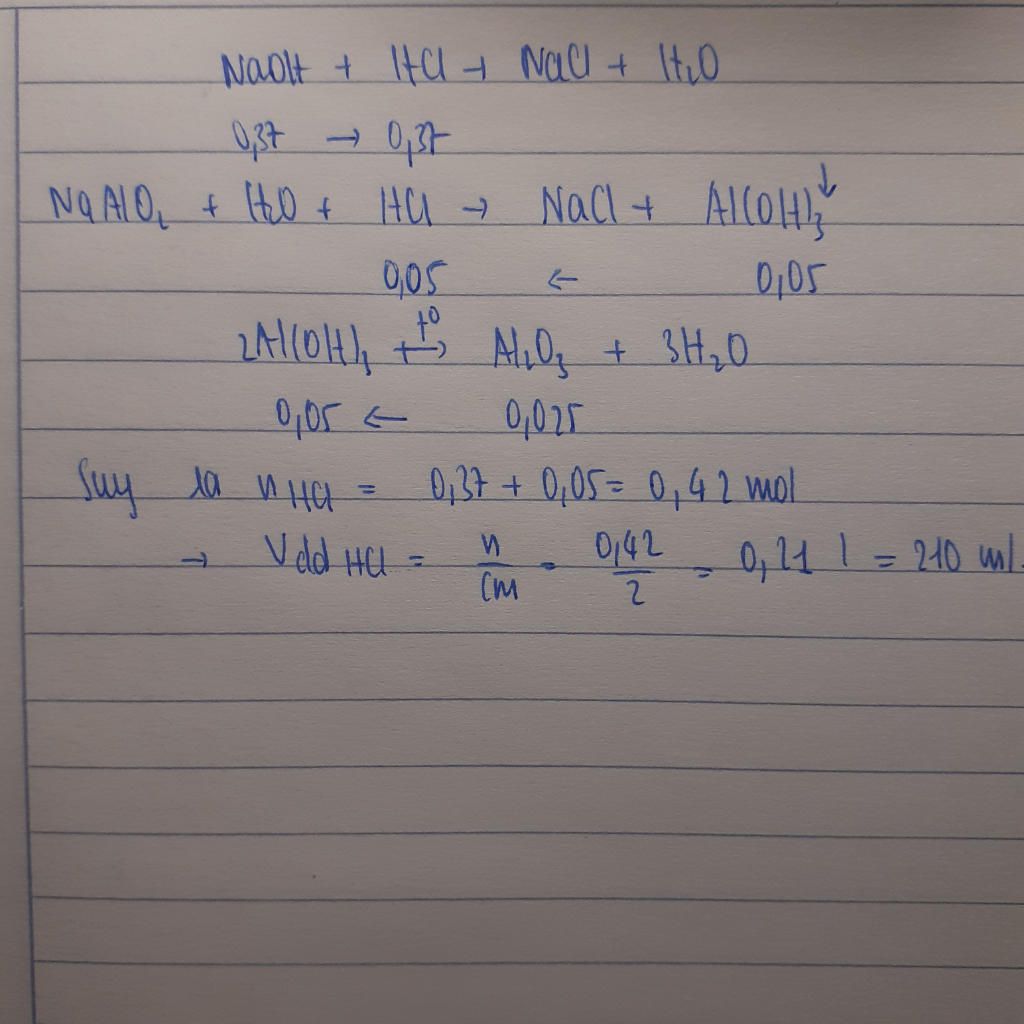 NaOH + HCl → NaCl + H₂O
0,37 → 0,37
NaAlO₂ + H₂O + HCl → NaCl + Al(OH)₃↓
0,05 ← 0,05
2Al(OH)₃ t⁰→ Al₂O₃ + 3H₂O
0,05 ← 0,025
Suy ra nHCl = 0,37 + 0,05 = 0,42 mol
→ Vdd HCl = n/CM = 0,42/2 = 0,21 l = 210 ml.